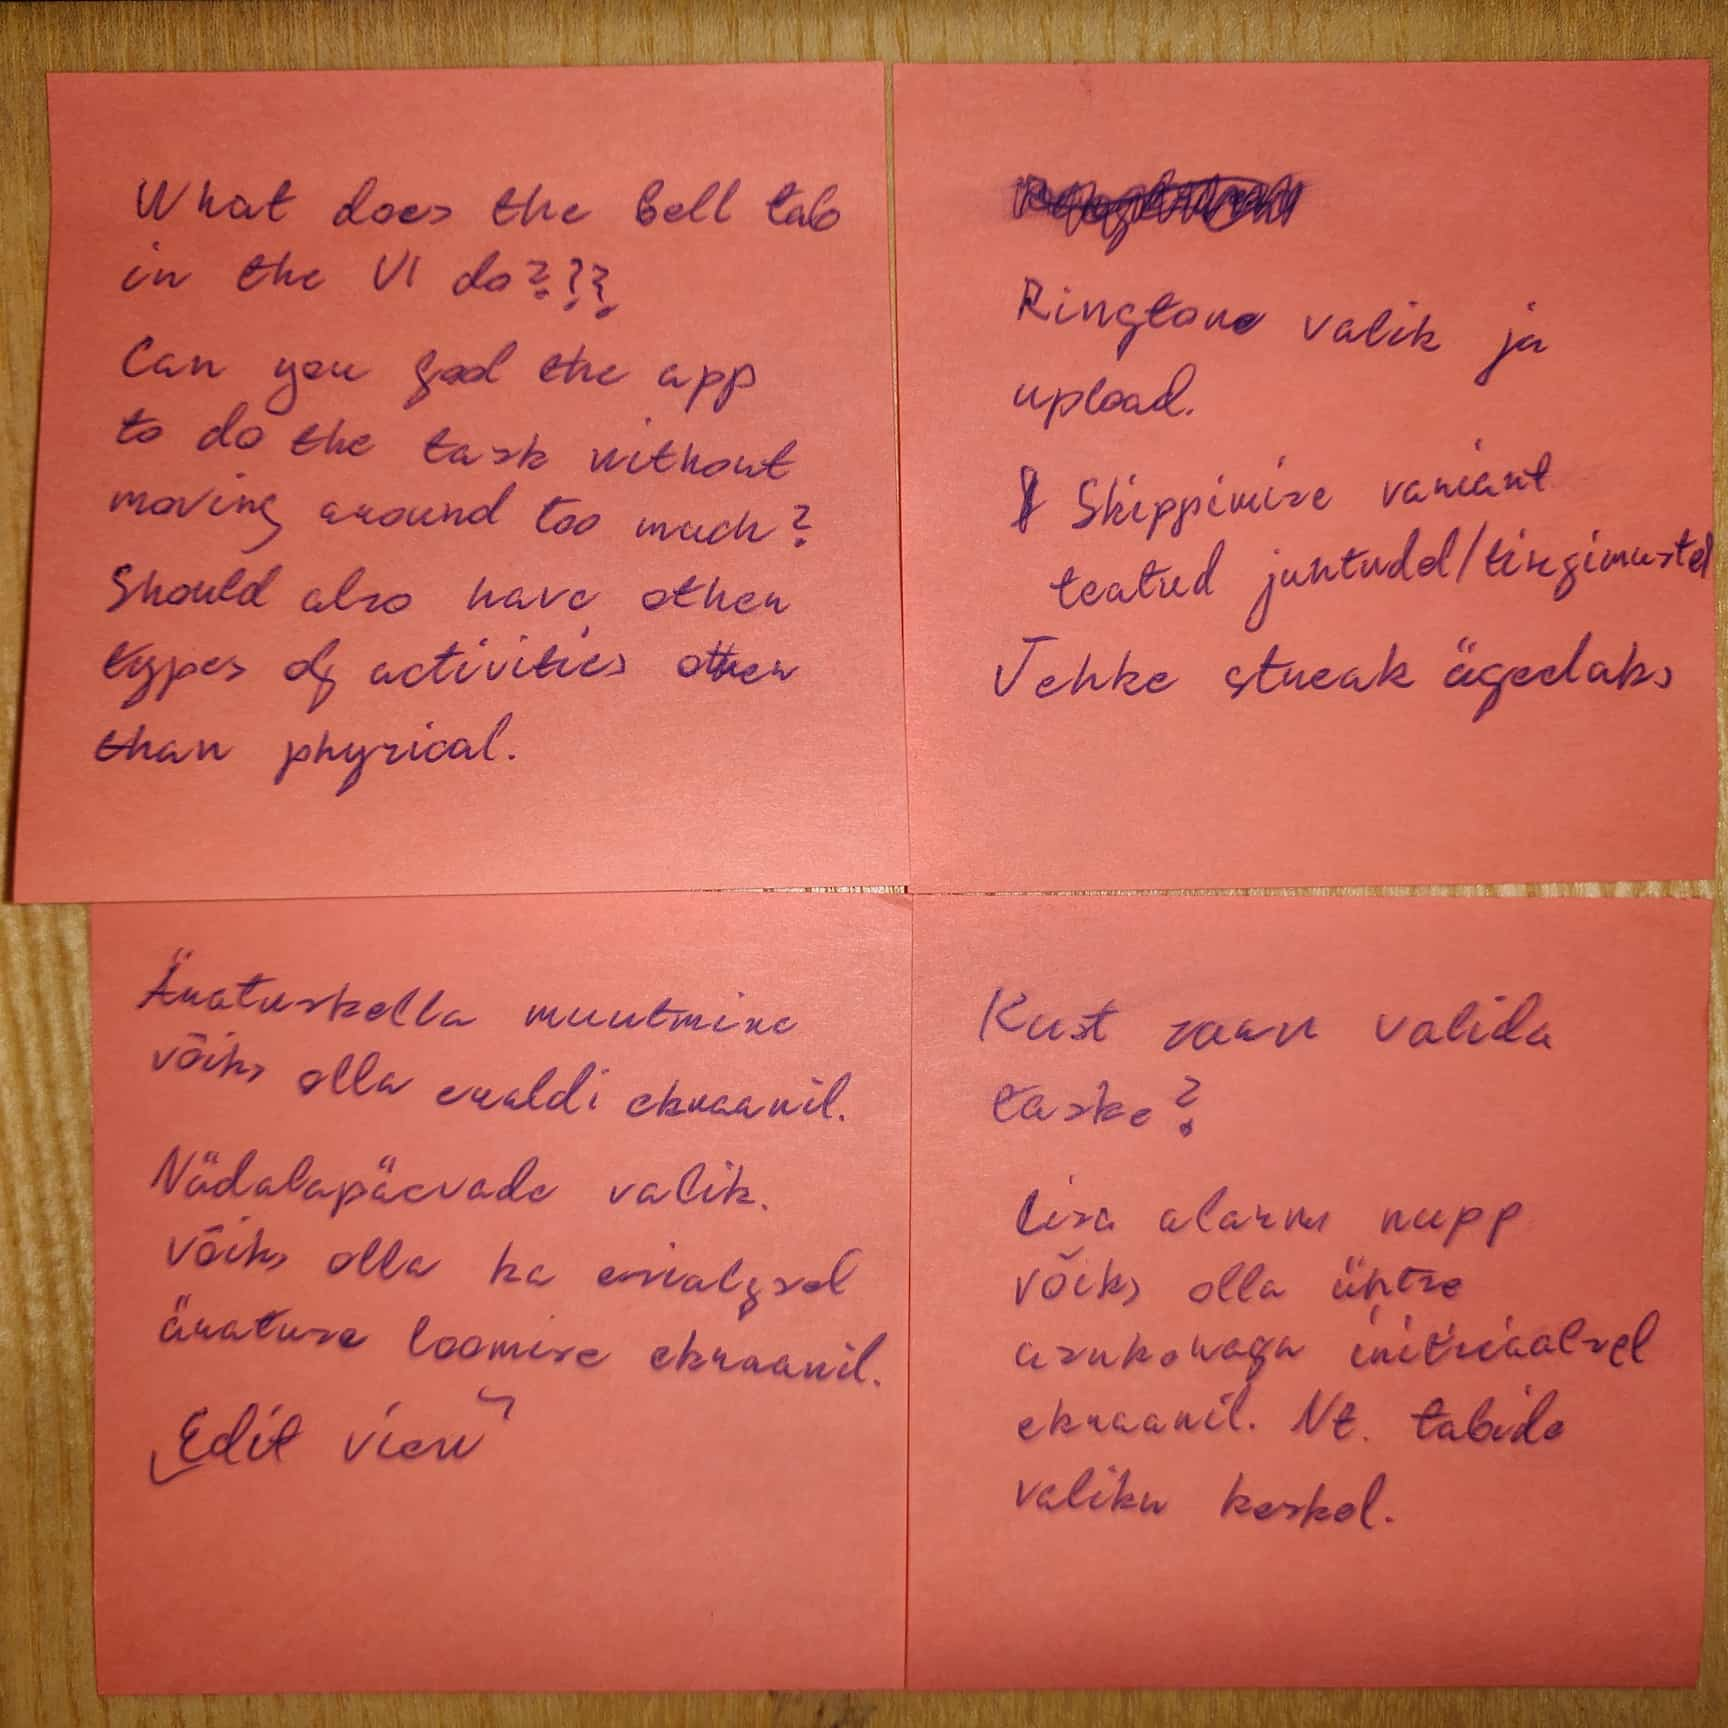 What does the bell tab
in the UI do???
Can you fool the app
to do the task without
moving around too much?
Should also have other
types of activities other
than physical.
Ringtone valik ja
upload.
Skippimise variant
teatud juhtudel/tingimustel
Tehke streak ägedaks
Äratuskella muutmine
võiks olla eraldi ekraanil.
Nädalapäevade valik.
võiks olla ka esialgsel
äratuse loomise ekraanil.
„Edit view"
Kust saan valida
taske?
Lisa alarm nupp
võiks olla ühtse
asukohaga initsiaalsel
ekraanil. Nt. tabide
valiku keskel.